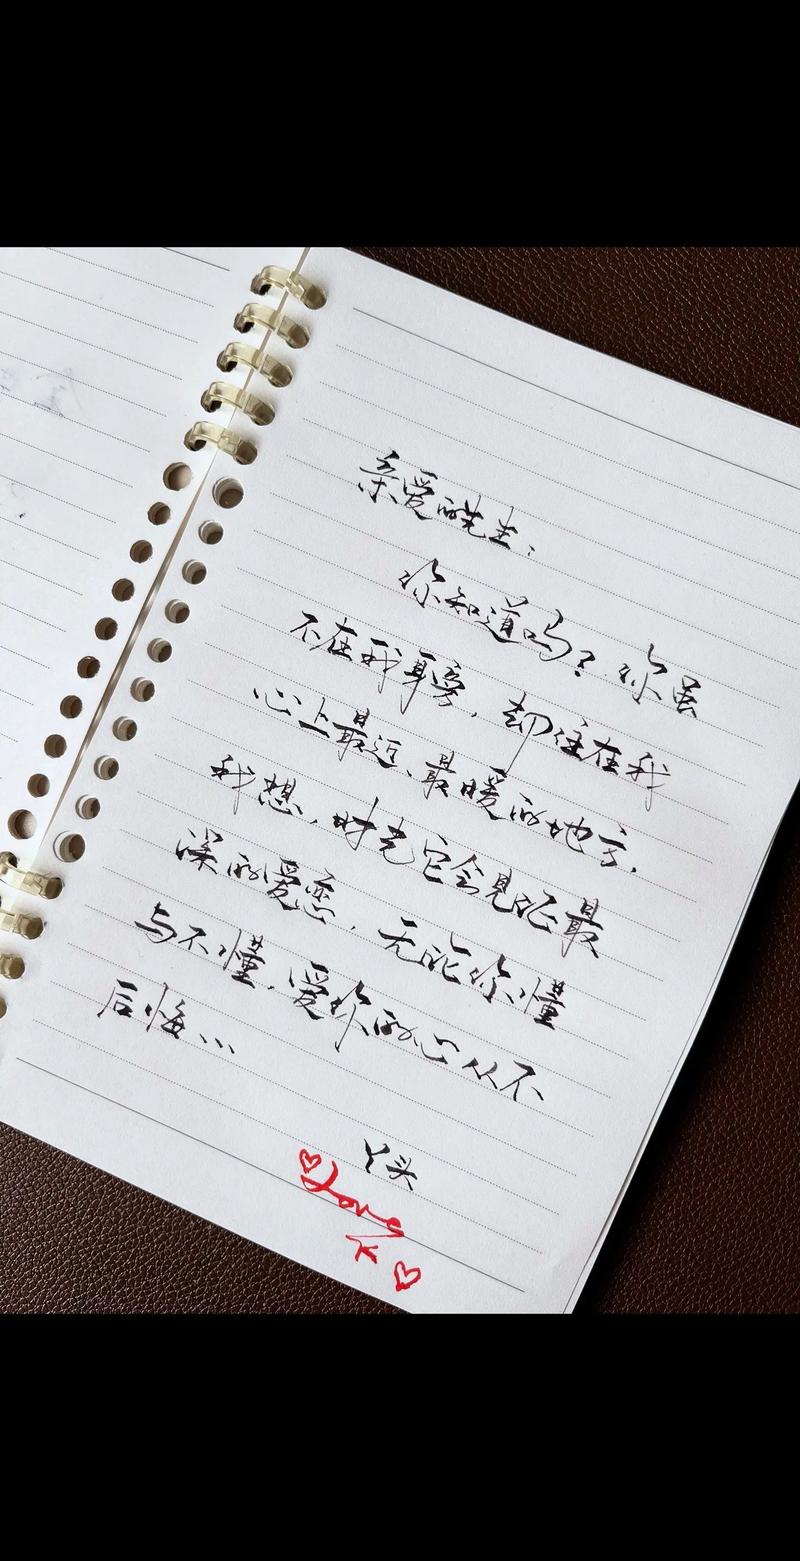 亲爱的先生:
你知道吗?你虽
不在我身旁,却住在我
心上最近、最暖的地方.
我想,时光它会见证最
深的爱恋,无论你懂
与不懂,爱你的心从不
后悔...
丫头
Love